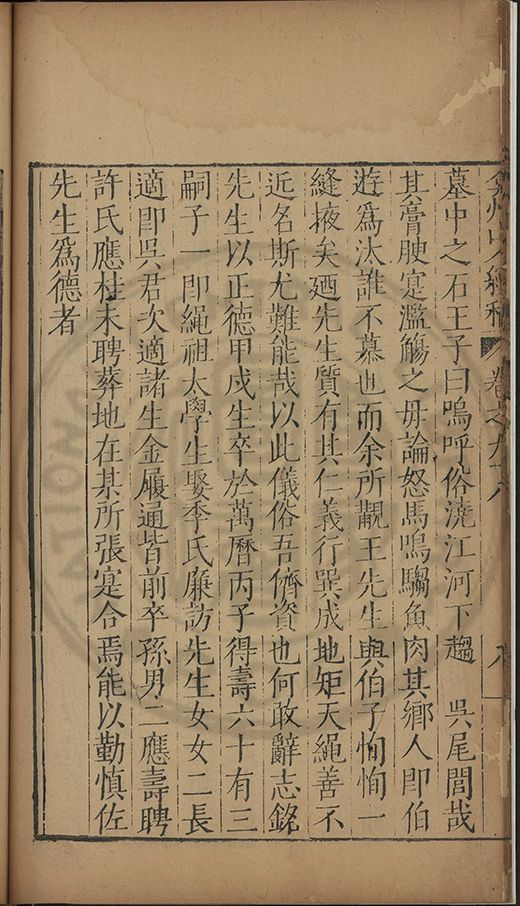 弇州山人續稿 卷之九十八 八
墓中之石王子曰嗚呼俗澆江河下趨 吳尾閭哉
其膏腴寔濫觴之毋論怒馬鳴騶魚肉其鄉人即伯
遊爲汰誰不慕也而余所覯王先生與伯子恂恂一
縫掖矣廼先生質有其仁義行巽成地矩天繩善不
近名斯尤難能哉以此儀俗吾儕資也何敢辭志銘
先生以正德甲戍生卒於萬曆丙子得壽六十有三
嗣子一即繩祖太學生娶季氏廉訪先生女女二長
適即吳君次適諸生金履通皆前卒孫男二應壽聘
許氏應桂未聘葬地在某所張寔合焉能以勤慎佐
先生爲德者